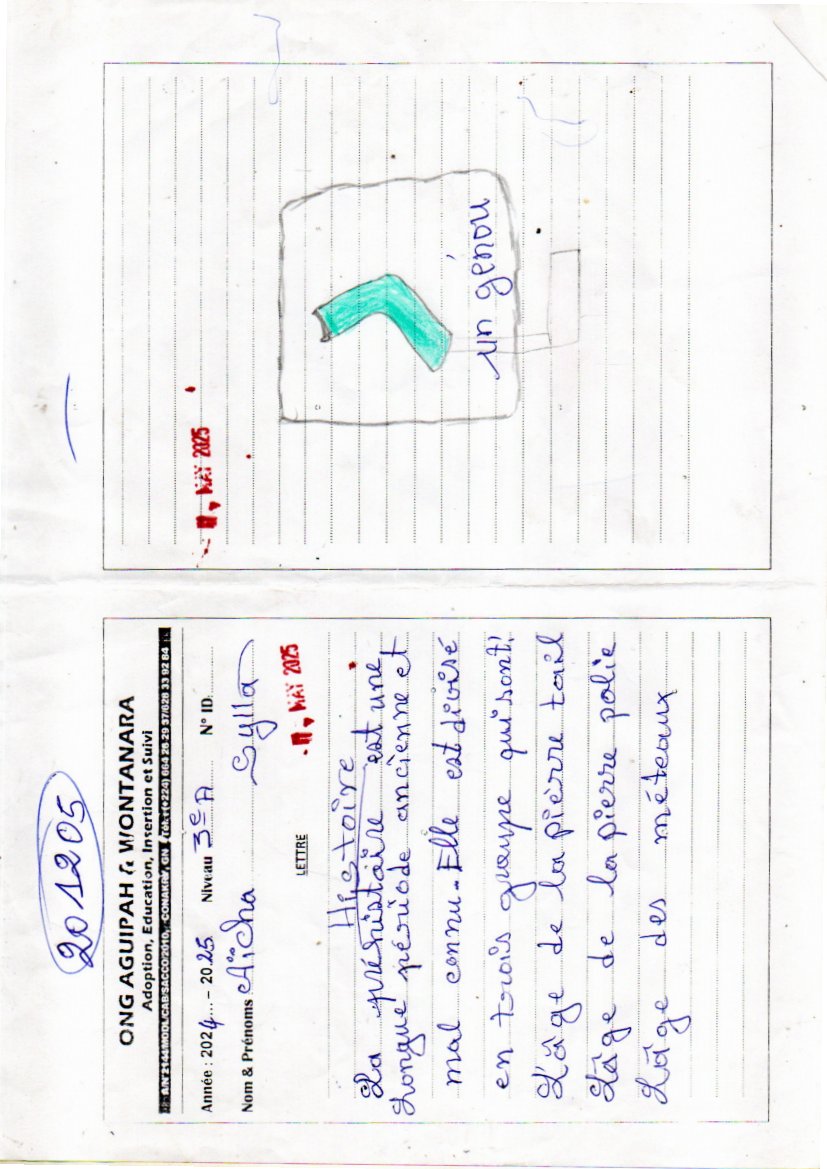 201205
ONG AGUIPAH & WONTANARA
Adoption, Education, Insertion et Suivi
Année : 2024... - 2025 Niveau 3e A N° ID
Nom & Prénoms Aïcha Sylla
MAY 2025
LETTRE
Histoire
La préhistoire est une
Longue période ancienne et
mal connu. Elle est divisé
en trois groupe qui sont:
L'âge de la pierre tail
L'âge de la pierre polie
L'âge des méteaux
MAY 2025
un génou